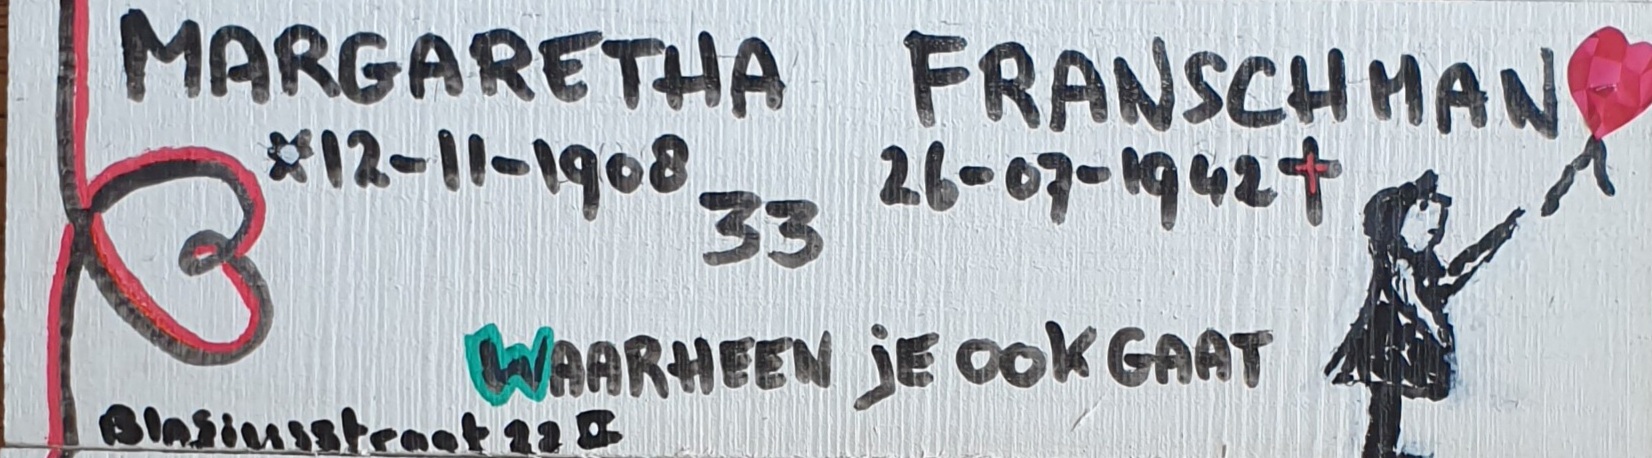 MARGARETHA FRANSCHMAN
12-11-1908 26-07-1942
33
WAARHEEN jE OOK GAAT
Blasiusstraat 22 II